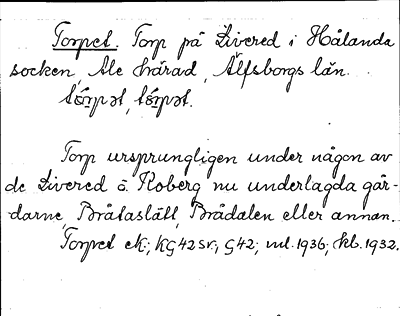 Torpet. Torp på Livered i Hålanda
socken, Ale härad, Älfsborgs län.
tórpət, tórpət.
Torp ursprungligen under någon av
de Livered o. Koberg nu underlagda går-
darne, Bråtaslätt, Brådalen eller annan.
Torpet ek; KG 42 sv; G 42; ml. 1936; kb. 1932.